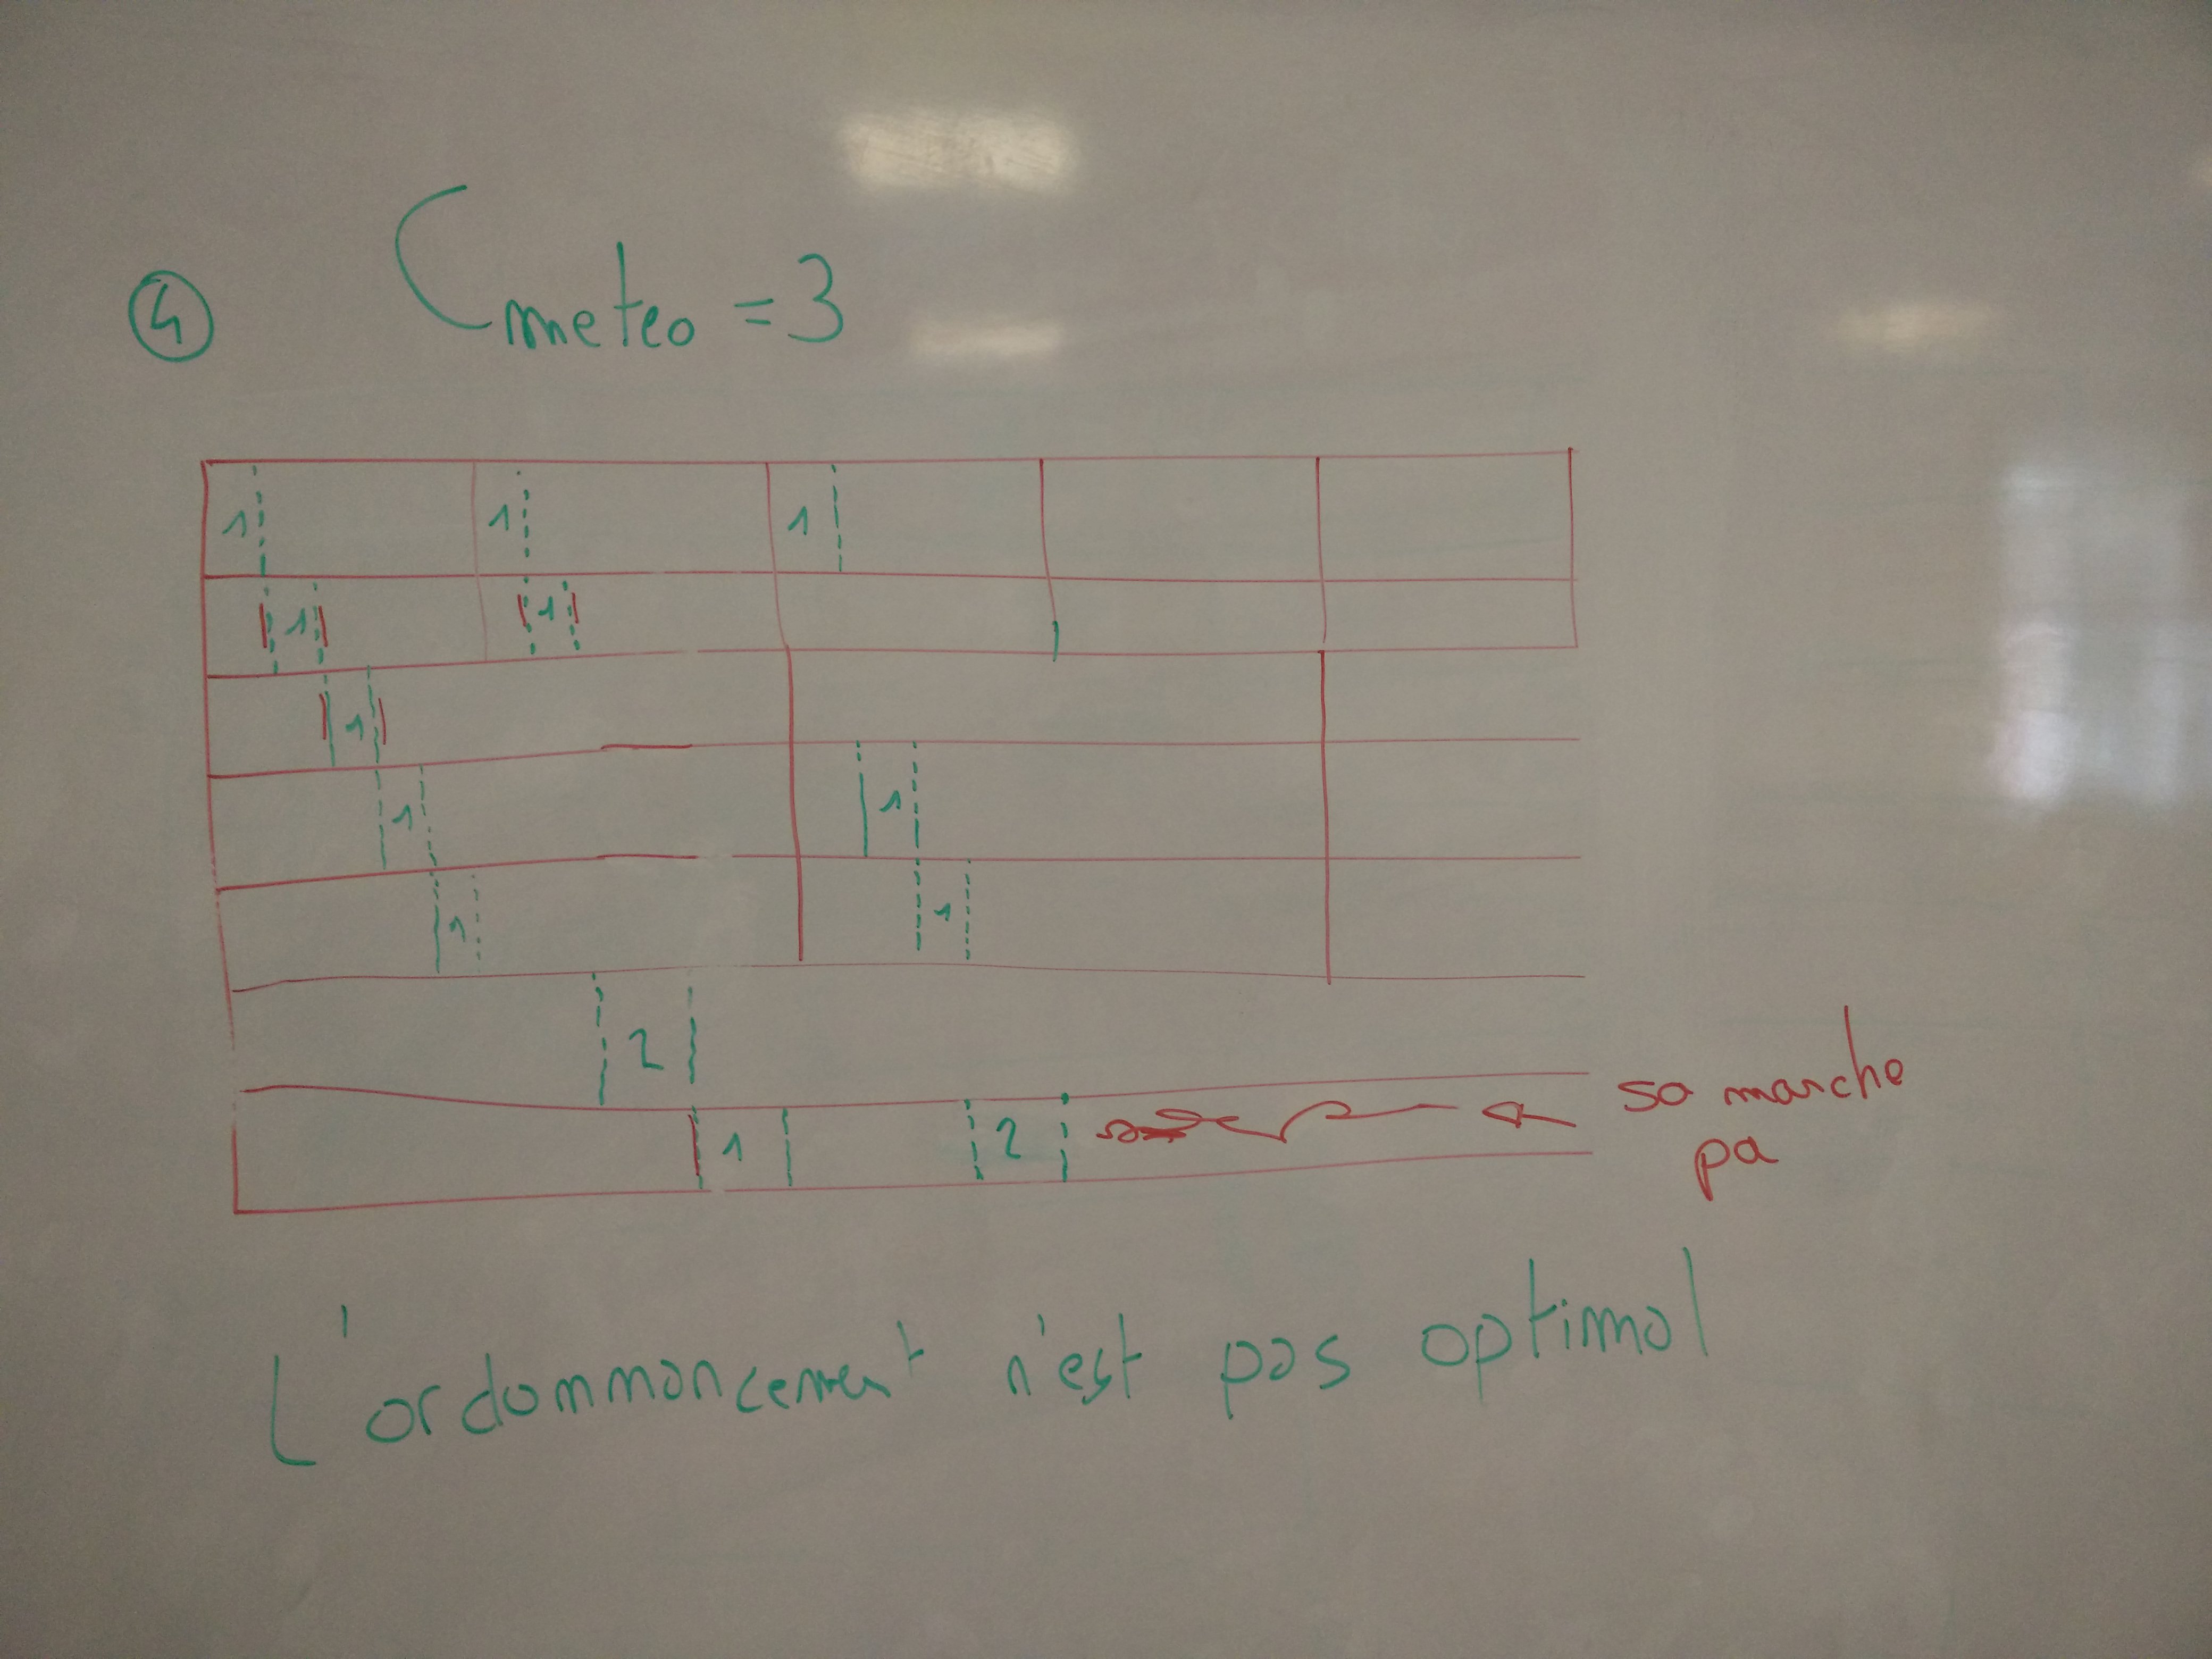 4
Cmeteo = 3
1 1 1
1 1
1
1 1
1 1
2
1 2
sa marche
pa
L'ordommancement n'est pas optimal